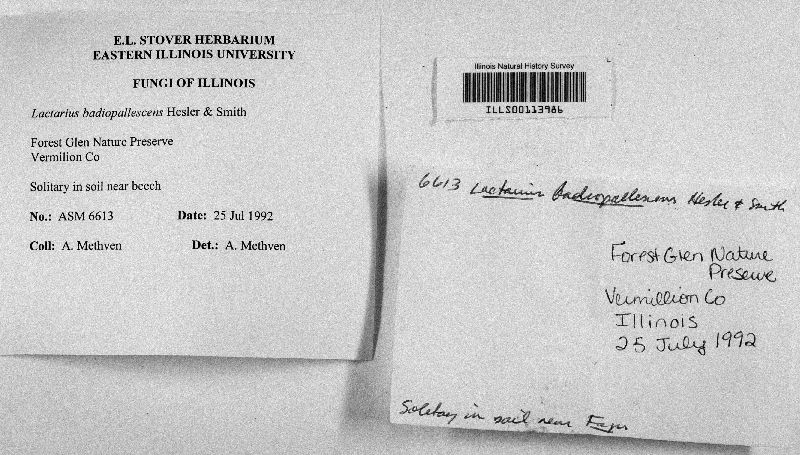 E.L. STOVER HERBARIUM
EASTERN ILLINOIS UNIVERSITY
FUNGI OF ILLINOIS
Lactarius badiopallescens Hesler & Smith
Forest Glen Nature Preserve
Vermilion Co
Solitary in soil near beech
No.: ASM 6613 Date: 25 Jul 1992
Coll: A. Methven Det.: A. Methven
Illinois Natural History Survey
ILLS00113986
6613 Lactarius Badiopallescens Hesler & Smith
Forest Glen Nature
Preserve
Vermillion Co
Illinois
25 July 1992
Solitary in soil near